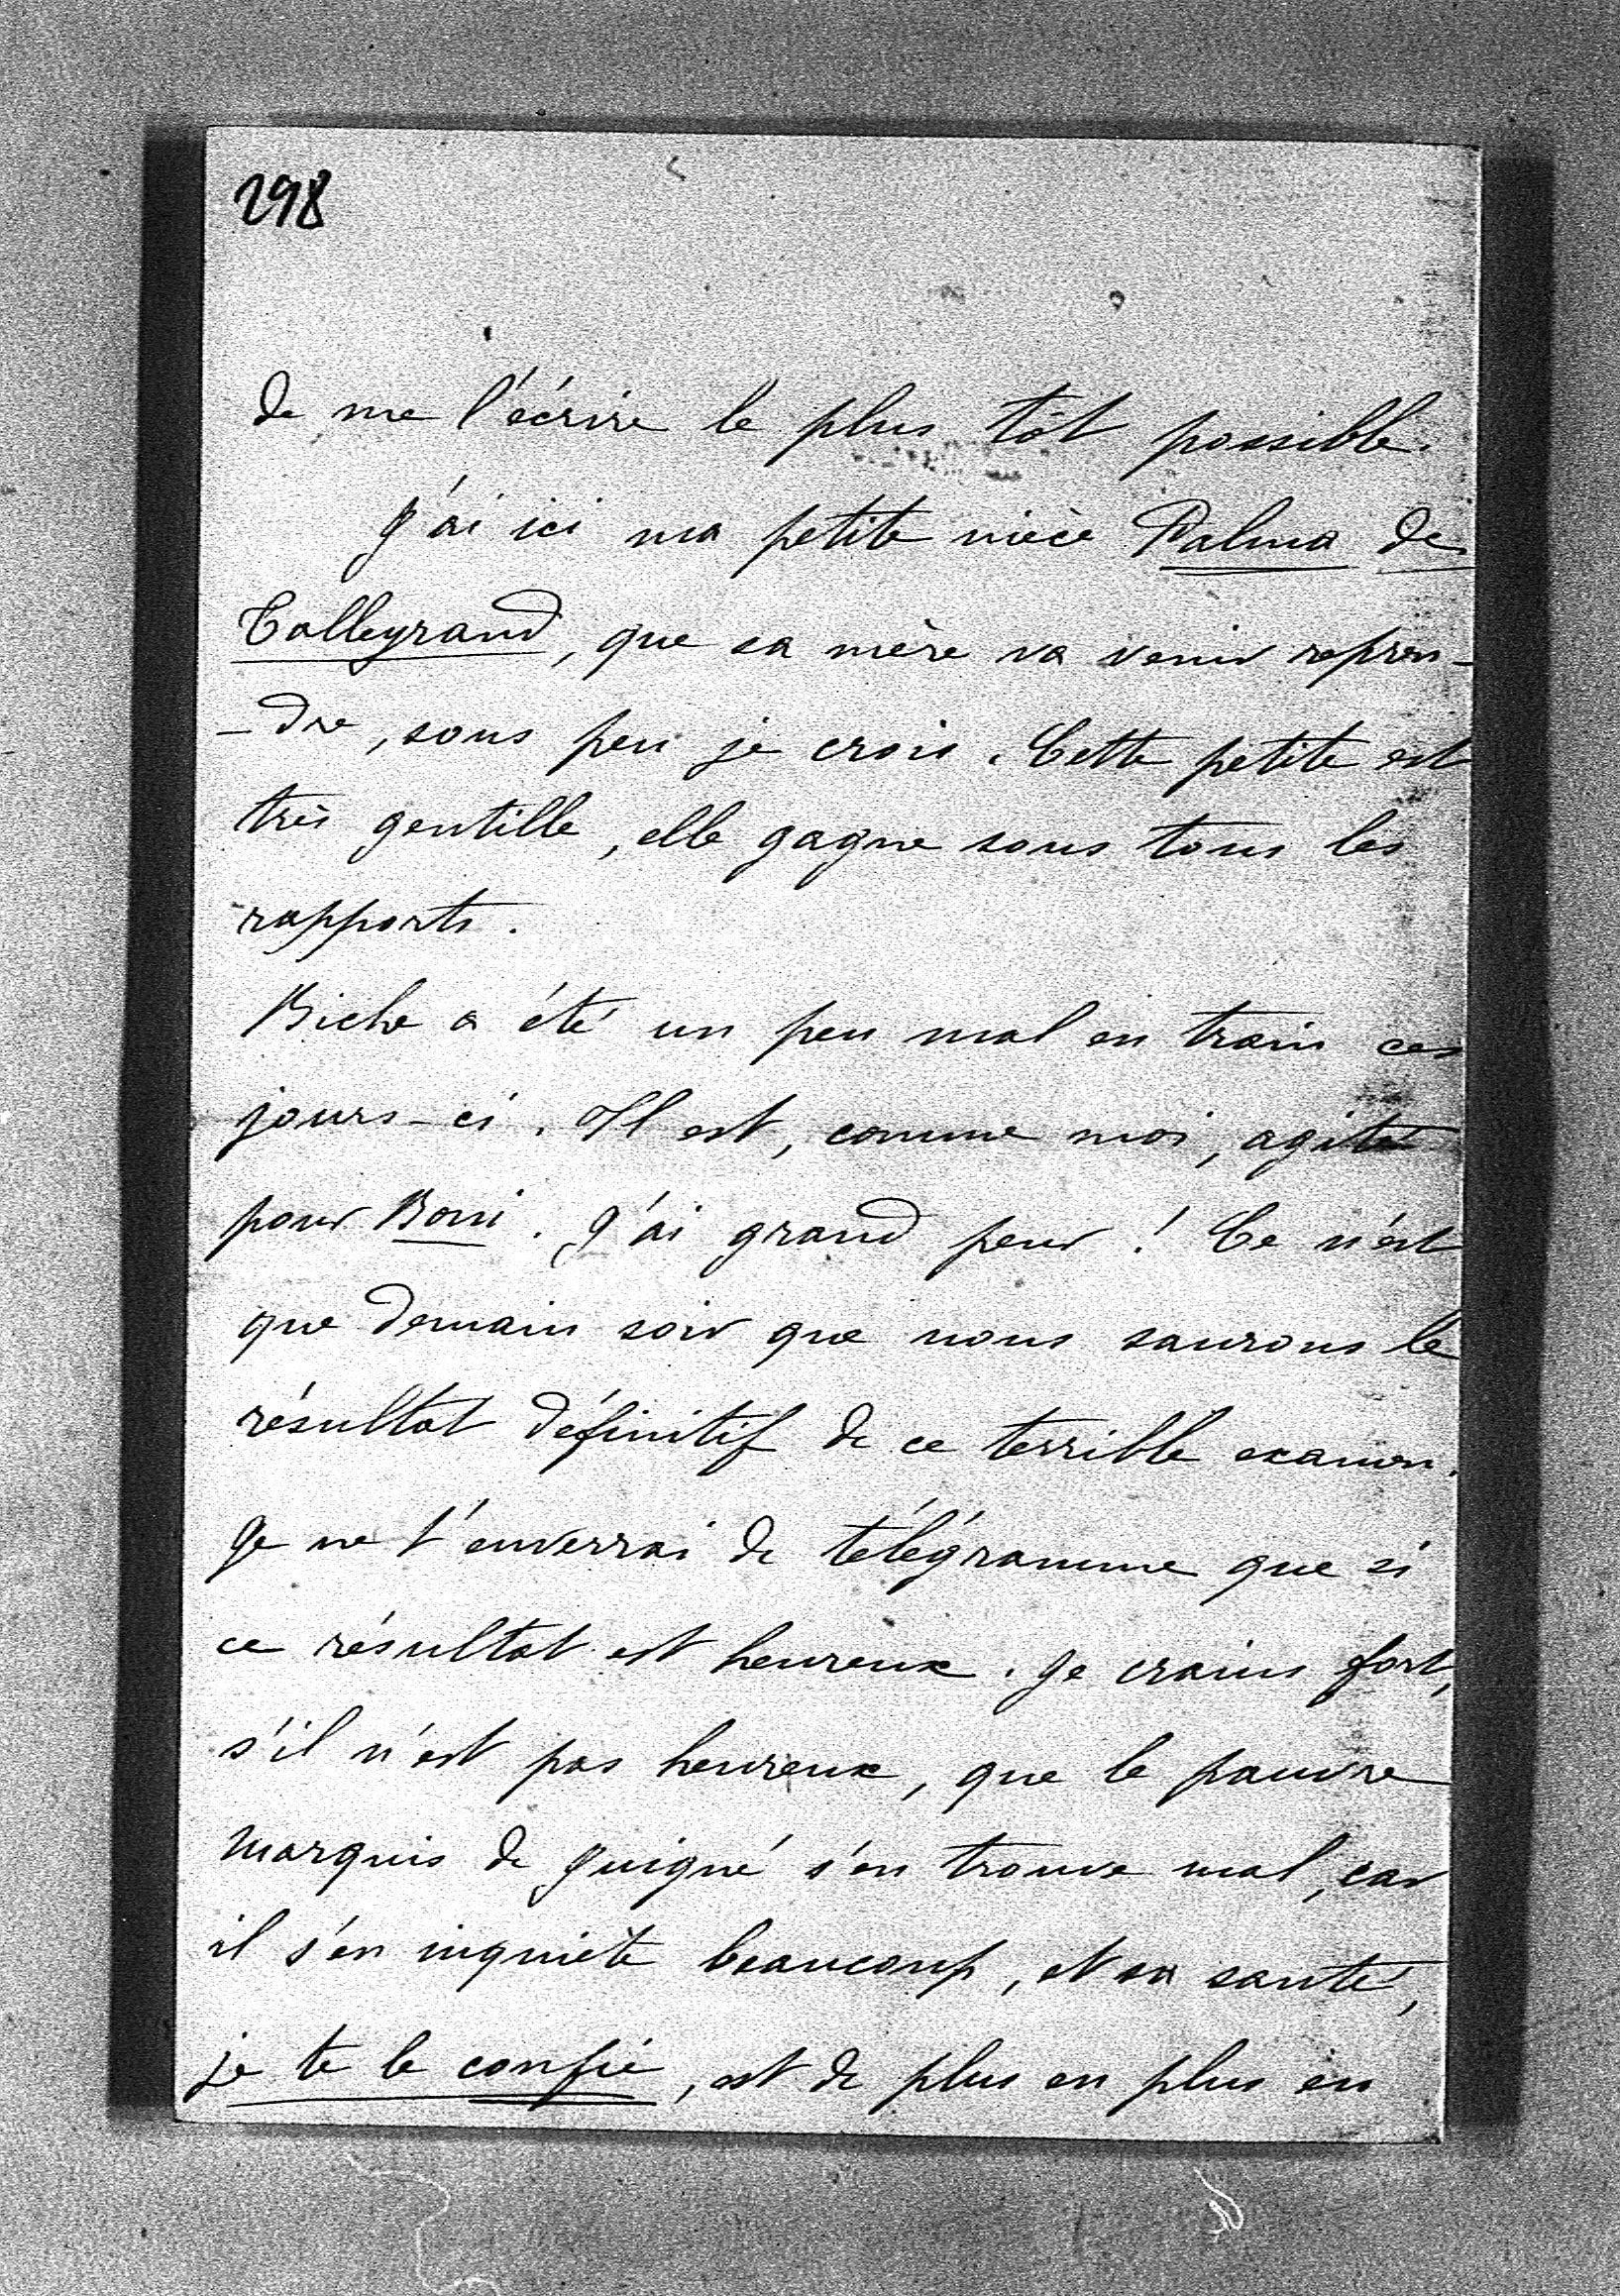 298
de me l'écrire le plus tôt possible.
J'ai ici ma petite nièce Palma de
Talleyrand, que sa mère va venir repren-
-dre, sous peu je crois. Cette petite est
très gentille, elle gagne sous tous les
rapports.
Biche a été un peu mal en train ces
jours-ci. Il est, comme moi, agité
pour Boni. J'ai grand peur ! Ce n'est
que demain soir que nous saurons le
résultat définitif de ce terrible examen.
Je ne t'enverrai de télégramme que si
ce résultat est heureux. Je crains fort,
s'il n'est pas heureux, que le pauvre
marquis de Juigné s'en trouve mal, car
il s'en inquiète beaucoup, et sa santé,
je te le confie, est de plus en plus en